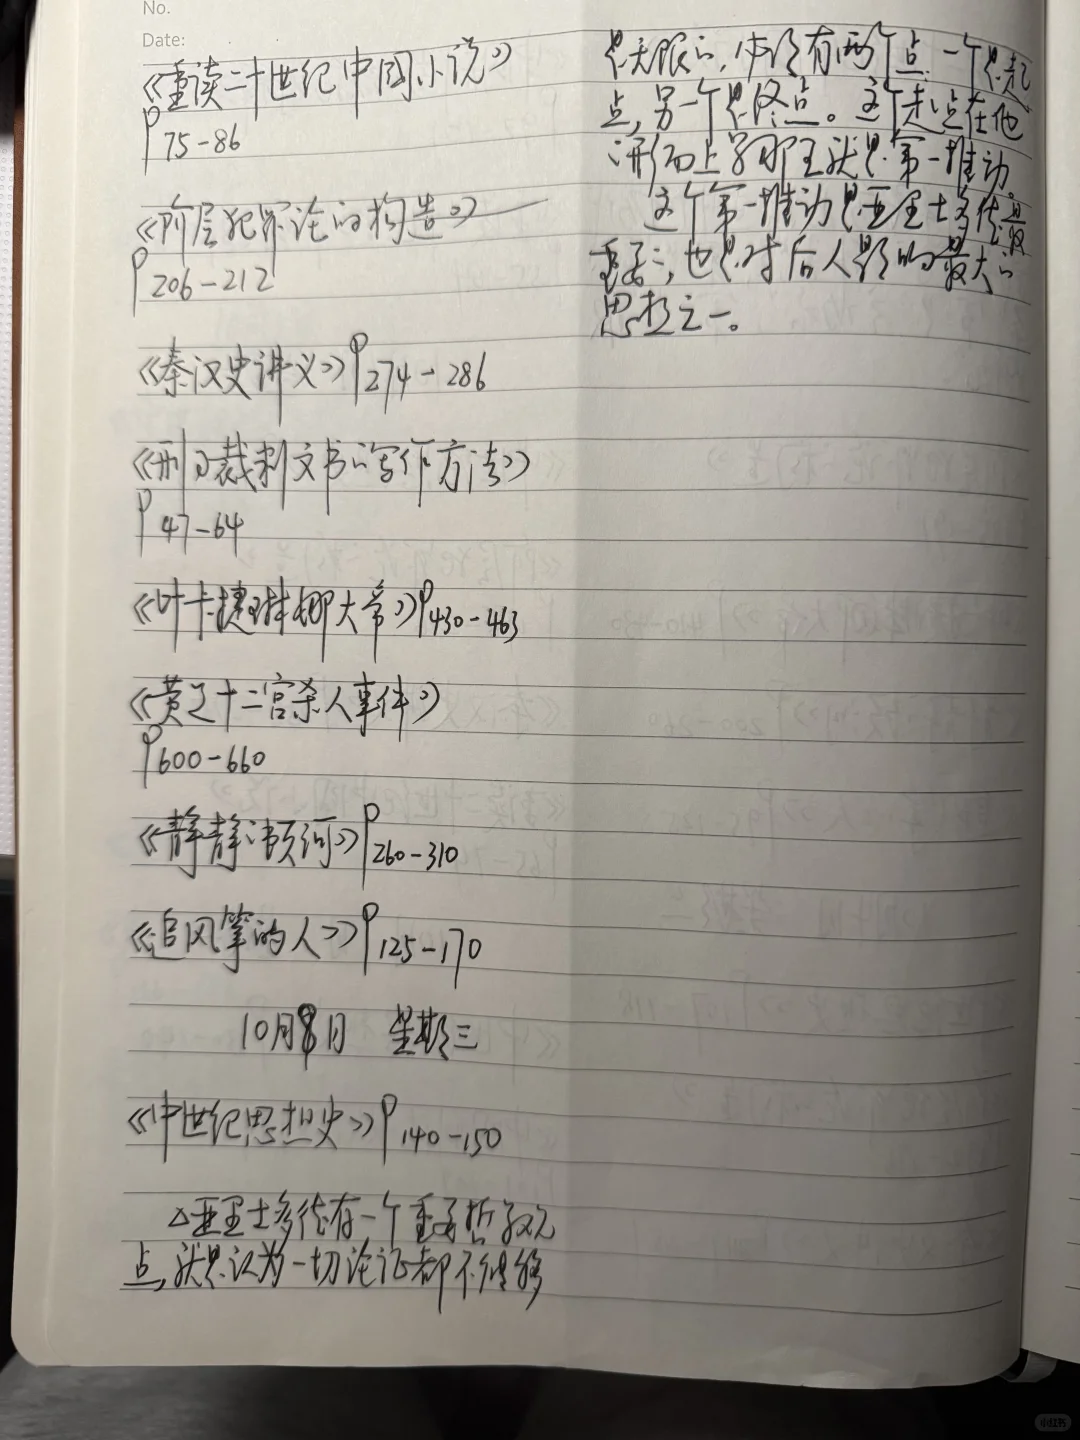 No.
Date:
《重读二十世纪中国小说》
P75-86
《阶层犯罪论的构造》
P206-212
《秦汉史讲义》P274-286
《刑事裁判文书的写作方法》
P47-64
《叶卡捷琳娜大帝》P430-463
《黄道十二宫杀人事件》
P600-660
《静静的顿河》P260-310
《追风筝的人》P125-170
10月8日 星期三
《中世纪思想史》P140-150
△亚里士多德有一个重要哲学观
点,就是认为一切论证都不能够
是无限的,必须有两个点,一个是起
点,另一个是终点。这个起点在他
的形而上学那里就是第一推动。
这个第一推动是亚里士多德最
重要的,也是对后人影响最大的
思想之一。
小红书